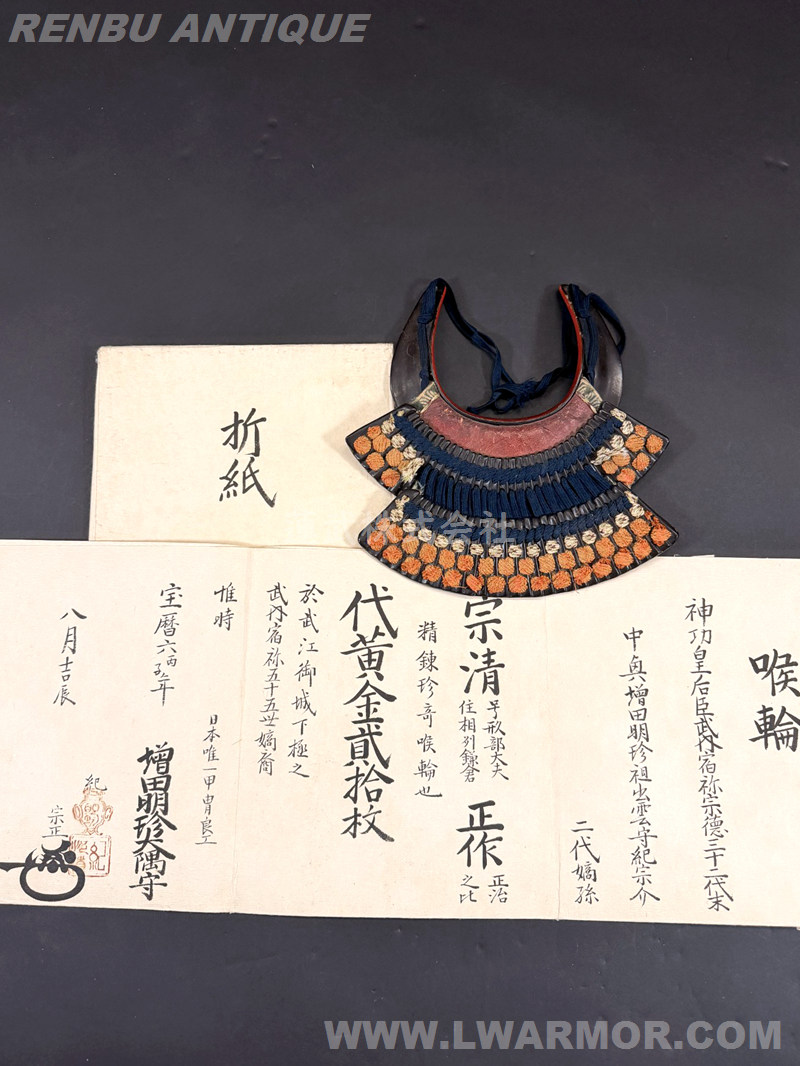 RENBU ANTIQUE
折紙
株式会社
喉輪
神功皇后臣武内宿祢宗德三十二代末
中興増田明珍祖出雲守紀宗介
二代嫡孫
宗清
号刑部大夫
住相州鎌倉
正作
正治
之比
精錬珍奇喉輪也
代黄金貳拾枚
於武江御城下極之
武内宿祢五十五世嫡裔
惟時
宝暦六丙子年
八月吉辰
日本唯一甲冑良工
増田明珍大隅守
紀
宗正
WWW.LWARMOR.COM